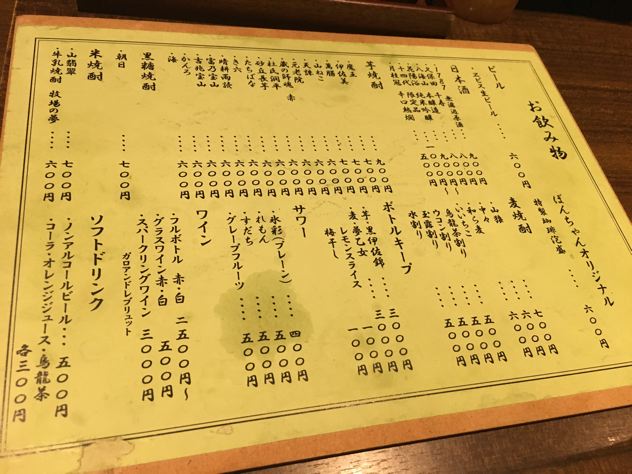 お飲み物
ビール
・ヱビス生ビール・・・・六〇〇円
日本酒
・月桂冠
芋焼酎
・魔王・・・・九〇〇円
・伊佐美・・・・七〇〇円
・萬膳・・・・七〇〇円
・山ねこ・・・・
・天誅・・・・
・元老院・・・・六〇〇円
・蔵の師魂 赤・・六〇〇円
・杜氏潤平・・・・六〇〇円
・たちばな・・・・六〇〇円
・き六・・・・六〇〇円
・晴耕雨読・・・・六〇〇円
・富乃宝山・・・・六〇〇円
・吉兆宝山・・・・六〇〇円
・海・・・・六〇〇円
黒糖焼酎
・朝日・・・・七〇〇円
米焼酎
・山翡翠・・・・七〇〇円
・牛乳焼酎 牧場の夢・・・・六〇〇円
ぼんちゃんオリジナル
特製珈琲泡盛・・・・六〇〇円
麦焼酎
・山猿・・・・七〇〇円
・中々・・・・六〇〇円
・和ら麦・・・・六〇〇円
・いいちこ・・・・五〇〇円
烏龍茶割り・・・五〇〇円
ウコン割り・・・五〇〇円
玉露割り・・・・五〇〇円
水割り・・・・五〇〇円
ボトルキープ
・芋・黒伊佐錦・・・三〇〇〇円
・麦・夢乙女・・・三〇〇〇円
レモンスライス・・一〇〇円
梅干し・・・・一〇〇円
サワー
・氷彩(プレーン)・・四〇〇円
・れもん・・・・五〇〇円
・すだち・・・・五〇〇円
・グレープフルーツ・・五〇〇円
ワイン
・フルボトル 赤・白 二五〇〇円～
・グラスワイン 赤・白 五〇〇円
・スパークリングワイン 三〇〇〇円
ガロアンドレブリュット
ソフトドリンク
・ノンアルコールビール・・・五〇〇円
・コーラ・オレンジジュース・烏龍茶
各三〇〇円